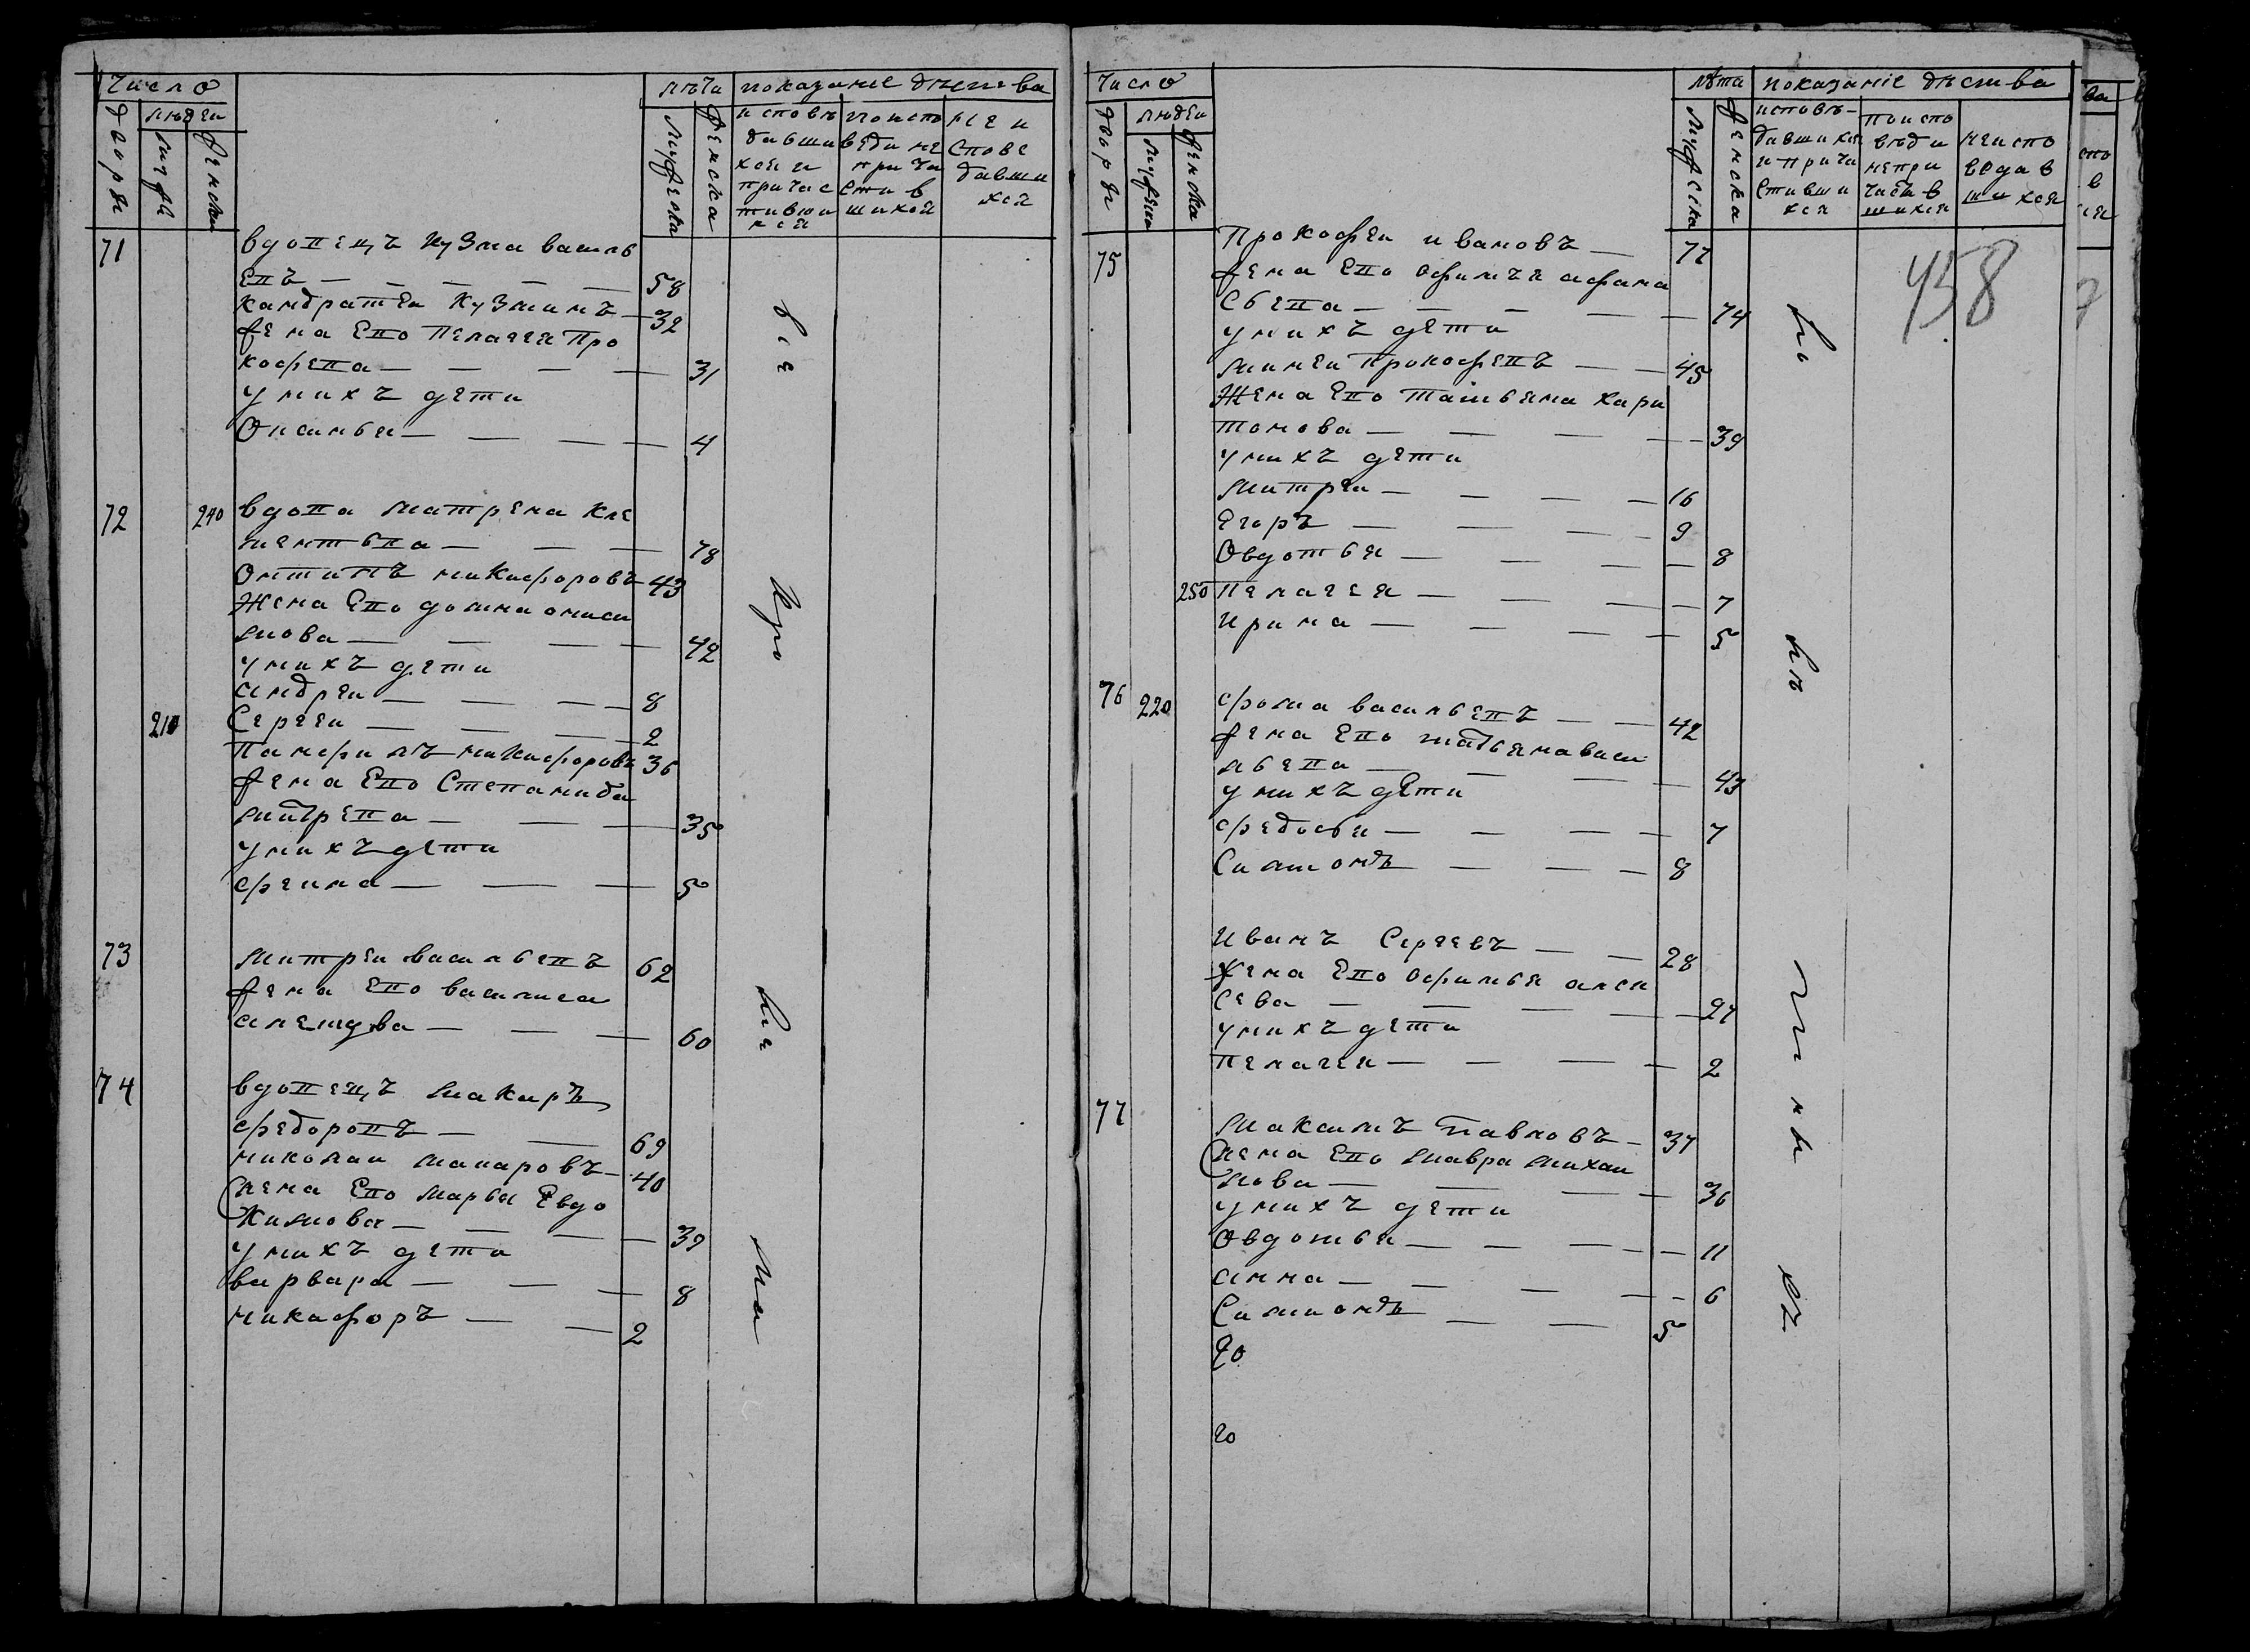 Число
лѣта показание действа
дворы
людеи
мужска
женска
мужеска
женска
исповѣ
давши
хся и
причас
тивши
хся
поиспо
веди не
причи
стив
шихся
неи
спове
давши
хся
71
вдовецъ кузма василь
евъ 58
кандратеи кузминъ 32
жена Ево Пелагея Про
кофева 31
у нихъ дети
Оксинья 4
72 240 вдова матрена кле
ментьева 78
Онтипъ никифоровъ 43
Жена Ево домна ониси
мова 42
у нихъ дети
андреи 8
210 Сергеи 2
Панфилъ никифоровъ 36
жена Ево Степанида
митрева 35
у нихъ дети
фекла 5
73 митреи васильевъ 62
жена Ево василиса
60
74 вдовецъ макаръ
федоровъ 69
николаи макаровъ 40
жена Ево марья Евдо
кимова 39
у нихъ дети
варвара 8
никифоръ 2
Число
лѣта показаніе дѣства
дворы
людеи
мужска
женска
мужеска
женска
исповѣ-
давшихся
и прича
стивши
хся
поиспо
вѣди
непри
частив
шихся
неиспо
ведав
шихся
458
75 Прокофеи ивановъ 77
жена Ево Офимья афана
сьева 74
у нихъ дети
минеи Прокофевъ 45
Жена Ево Татьяна хари
тонова 39
у нихъ дети
митреи 16
егоръ 9
Овдотья 8
250 Пелагея 7
ирина 5
76 220 фома васильевъ 42
жена Ево татьяна васи
льева 43
у нихъ дети
федосья 7
Симионъ 8
иванъ Сергевъ 28
жена Ево офимья алек
сева 27
у нихъ дети
пелагея 2
77 максимъ Павловъ 37
жена Ево мавра михаи
лова 36
у нихъ дети
Овдотья 11
анна 6
Симионъ 5
го